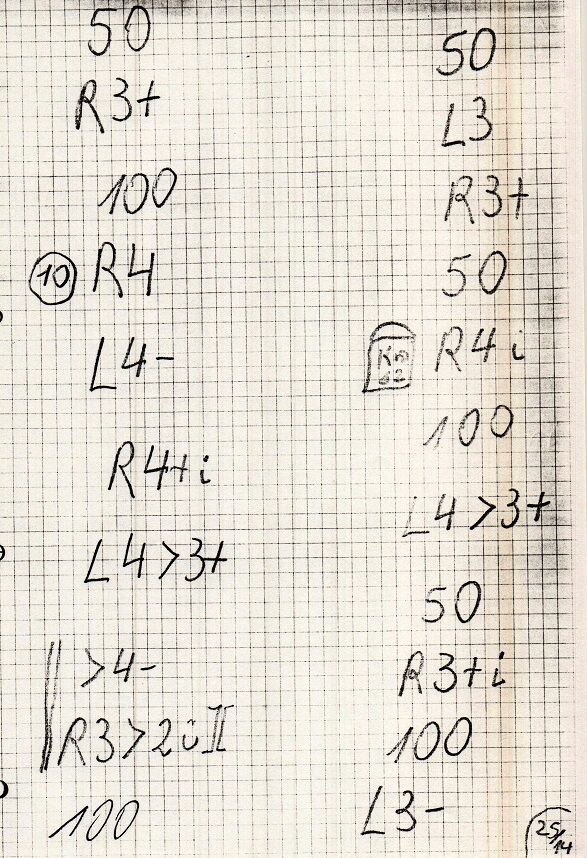 50
R3+
100
10 R4
L4-
R4+i
L4>3+
>4-
R3>2üII
100
50
L3
R3+
50
R4i
100
L4>3+
50
R3+i
100
L3-
25/14